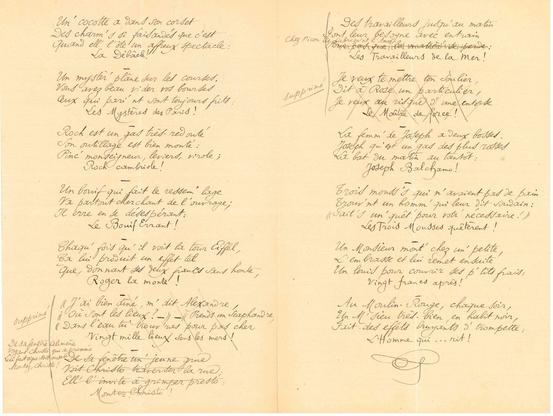 Un' cocotte a dans son corset
Des charm's si faisandés que c'est
Quand ell' l'ôte un affreux spectacle :
La Débâcle !
Un mystèr' plane sur les courses,
Vous avez beau vider vos bourses
Ceux qui pari'nt sont toujours fuits :
Les Mystères des Paris !
Roch est un gas très redouté
Son outillage est bien monté :
Pinc' monseigneur, leviers, virole ;
Roch cambriole !
Un bouif qui fait le ressem'lage
Va partout cherchant de l'ouvrage ;
Il erre en se désespérant,
Le Bouif Errant !
Chaqu' fois qu'il voit la tour Eiffel,
Ça lui produit un effet tel
Que, donnant ses deux francs sans honte,
Roger la monte !
supprimé
« J'ai bien dîné, m' dit Alexandre,
Où sont les lieux ! — » — « Prends un scaphandre,
Dans l'eau tu n'iras pas pour pas cher
Vingt mille lieux sous les mers !
De sa fenêtre un' jeune grue
Voit Christo traverser la rue,
Ell' l'invite à grimper presto :
Monte, Christo !
Des travailleurs jusqu'au matin
Font leur besogne avec entrain
Chez Picon
Les Travailleurs de la Mer !
supprimé
Je veux te mettre, ton soulier,
Dit à Rose un particulier,
Je veux au risque d'une entorse
Le Moule de force !
La femm' de Joseph a deux bosses.
Joseph qu'est un gas des plus rosses
La bat du matin au tantôt :
Joseph Balthamo !
Trois mouss's qui n'avaient pas de pain
Trouv'nt un homm' qui leur dit soudain :
« Fait's un' quêt' pour votr' nécessaire ! »
Les Trois Mousses quêtèrent !
Un Monsieur mont' chez un' petite,
L'embrasse et lui remet ensuite
Un louis pour couvrir ses p'tits frais.
Vingt francs après !
Au Moulin-Rouge, chaque soir,
Un M'sieu très bien, en habit noir,
Fait des effets bruyants d'trompette,
L'Homme qui ... rit !